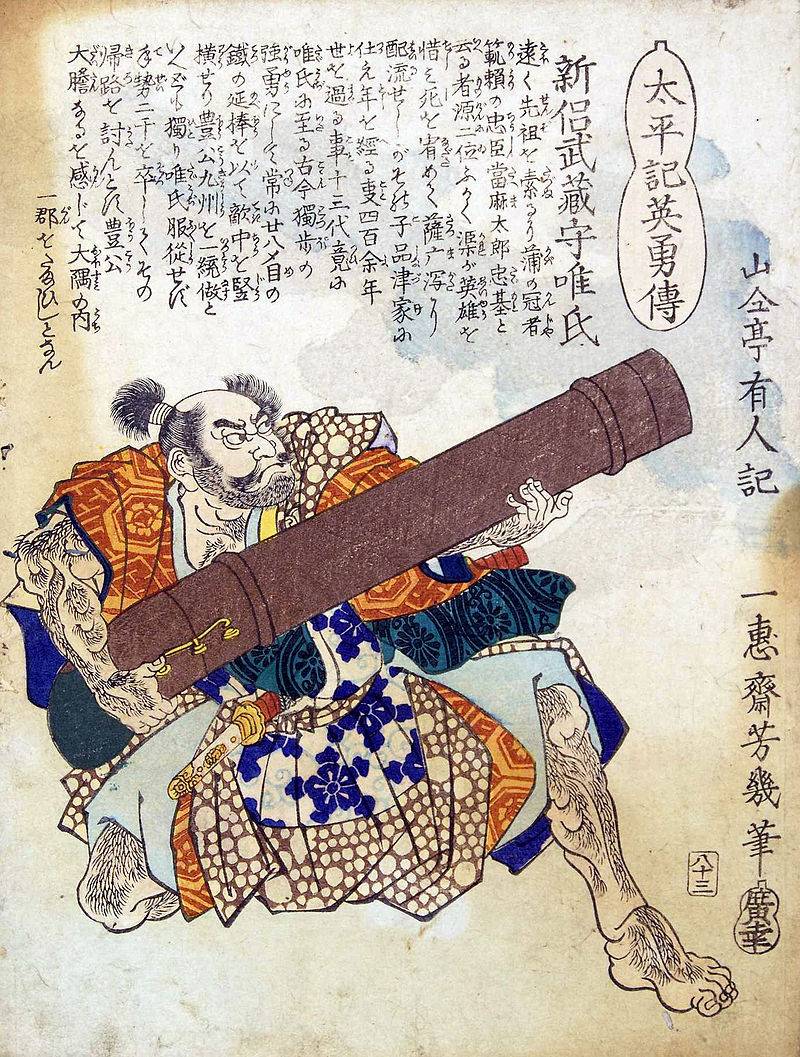 太平記英勇傳
山仝亭有人記
一惠齋芳幾筆
廣幸
八十三
新侶武藏守唯氏
遠く先祖を素るに蒲の冠者
範頼の忠臣當麻太郎忠基と
云る者源二位ふかく渠が英雄を
惜み死を宥めて薩广潟に
配流せしがそれが子品津家に
仕え年を經る事四百余年
世を過る事十三代竟に
唯氏に至る古今獨歩の
強勇にして常に廿八〆目の
鐵の延棒を以て敵中を竪
横せり豊公九州を一統做と
いへども獨り唯氏服從せず
手勢二千を卒してその
帰路を討んとす豊公
大膽なるを感じて大隅の内
一郡をたまひしとなん